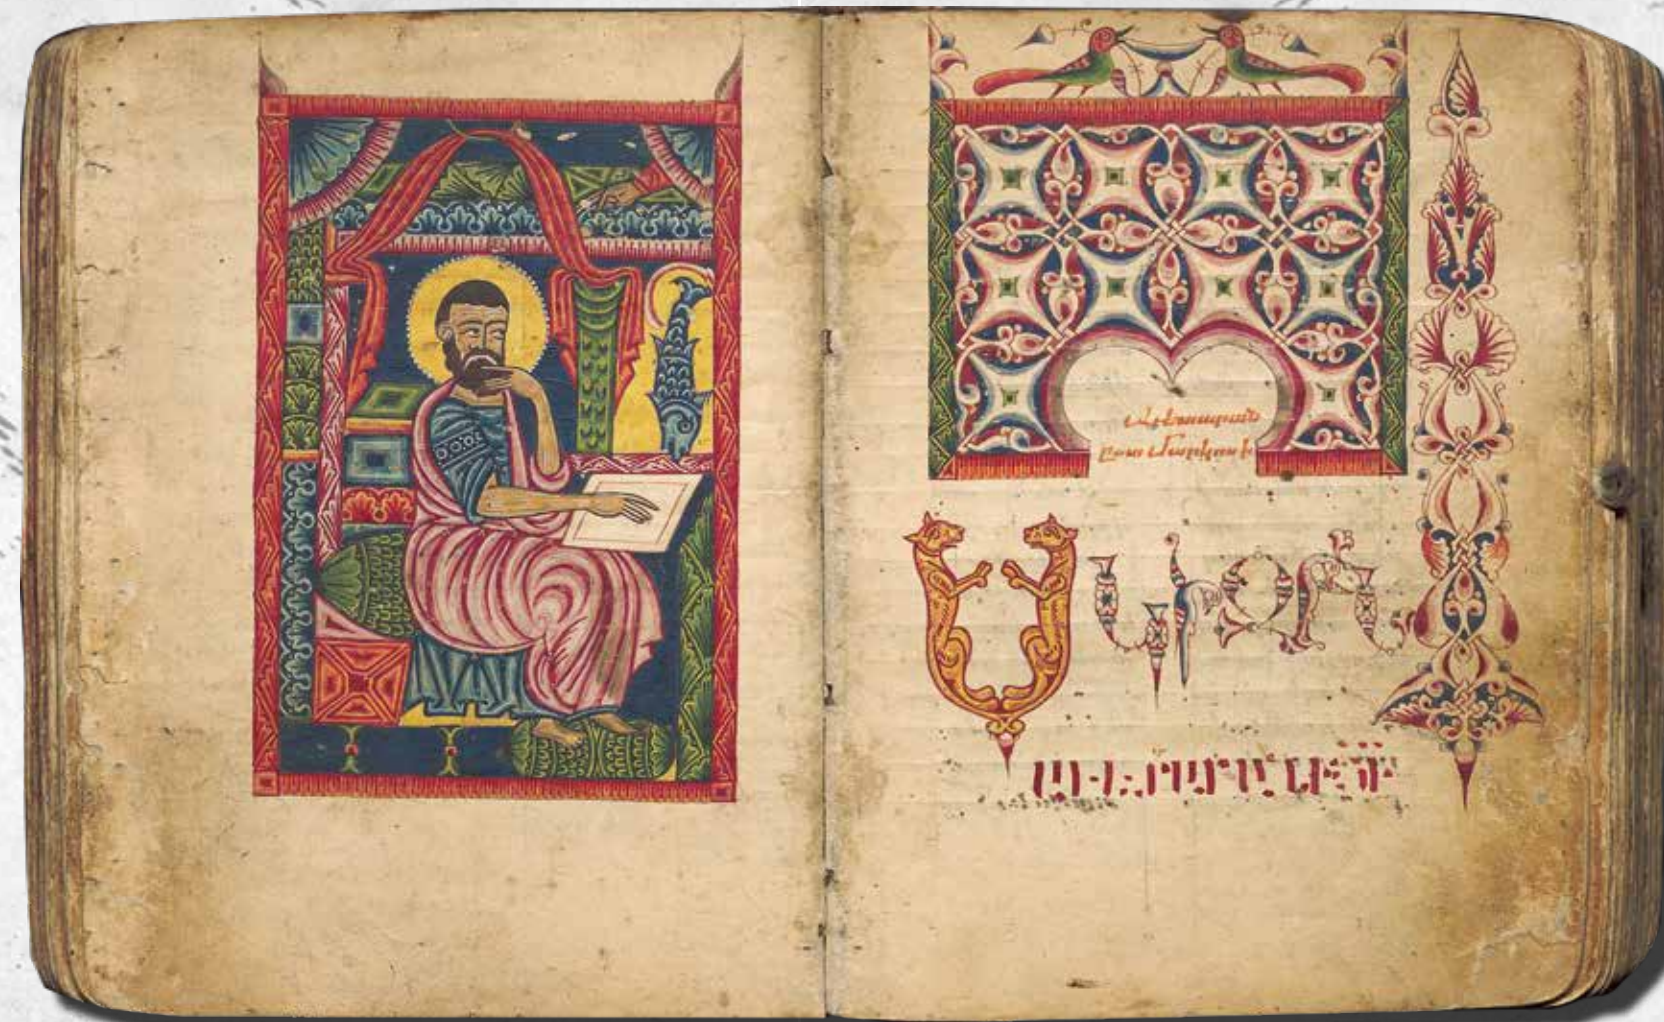 Աւետարան
ըստ Մարկոսի
Սկիզբն
աւետարանի